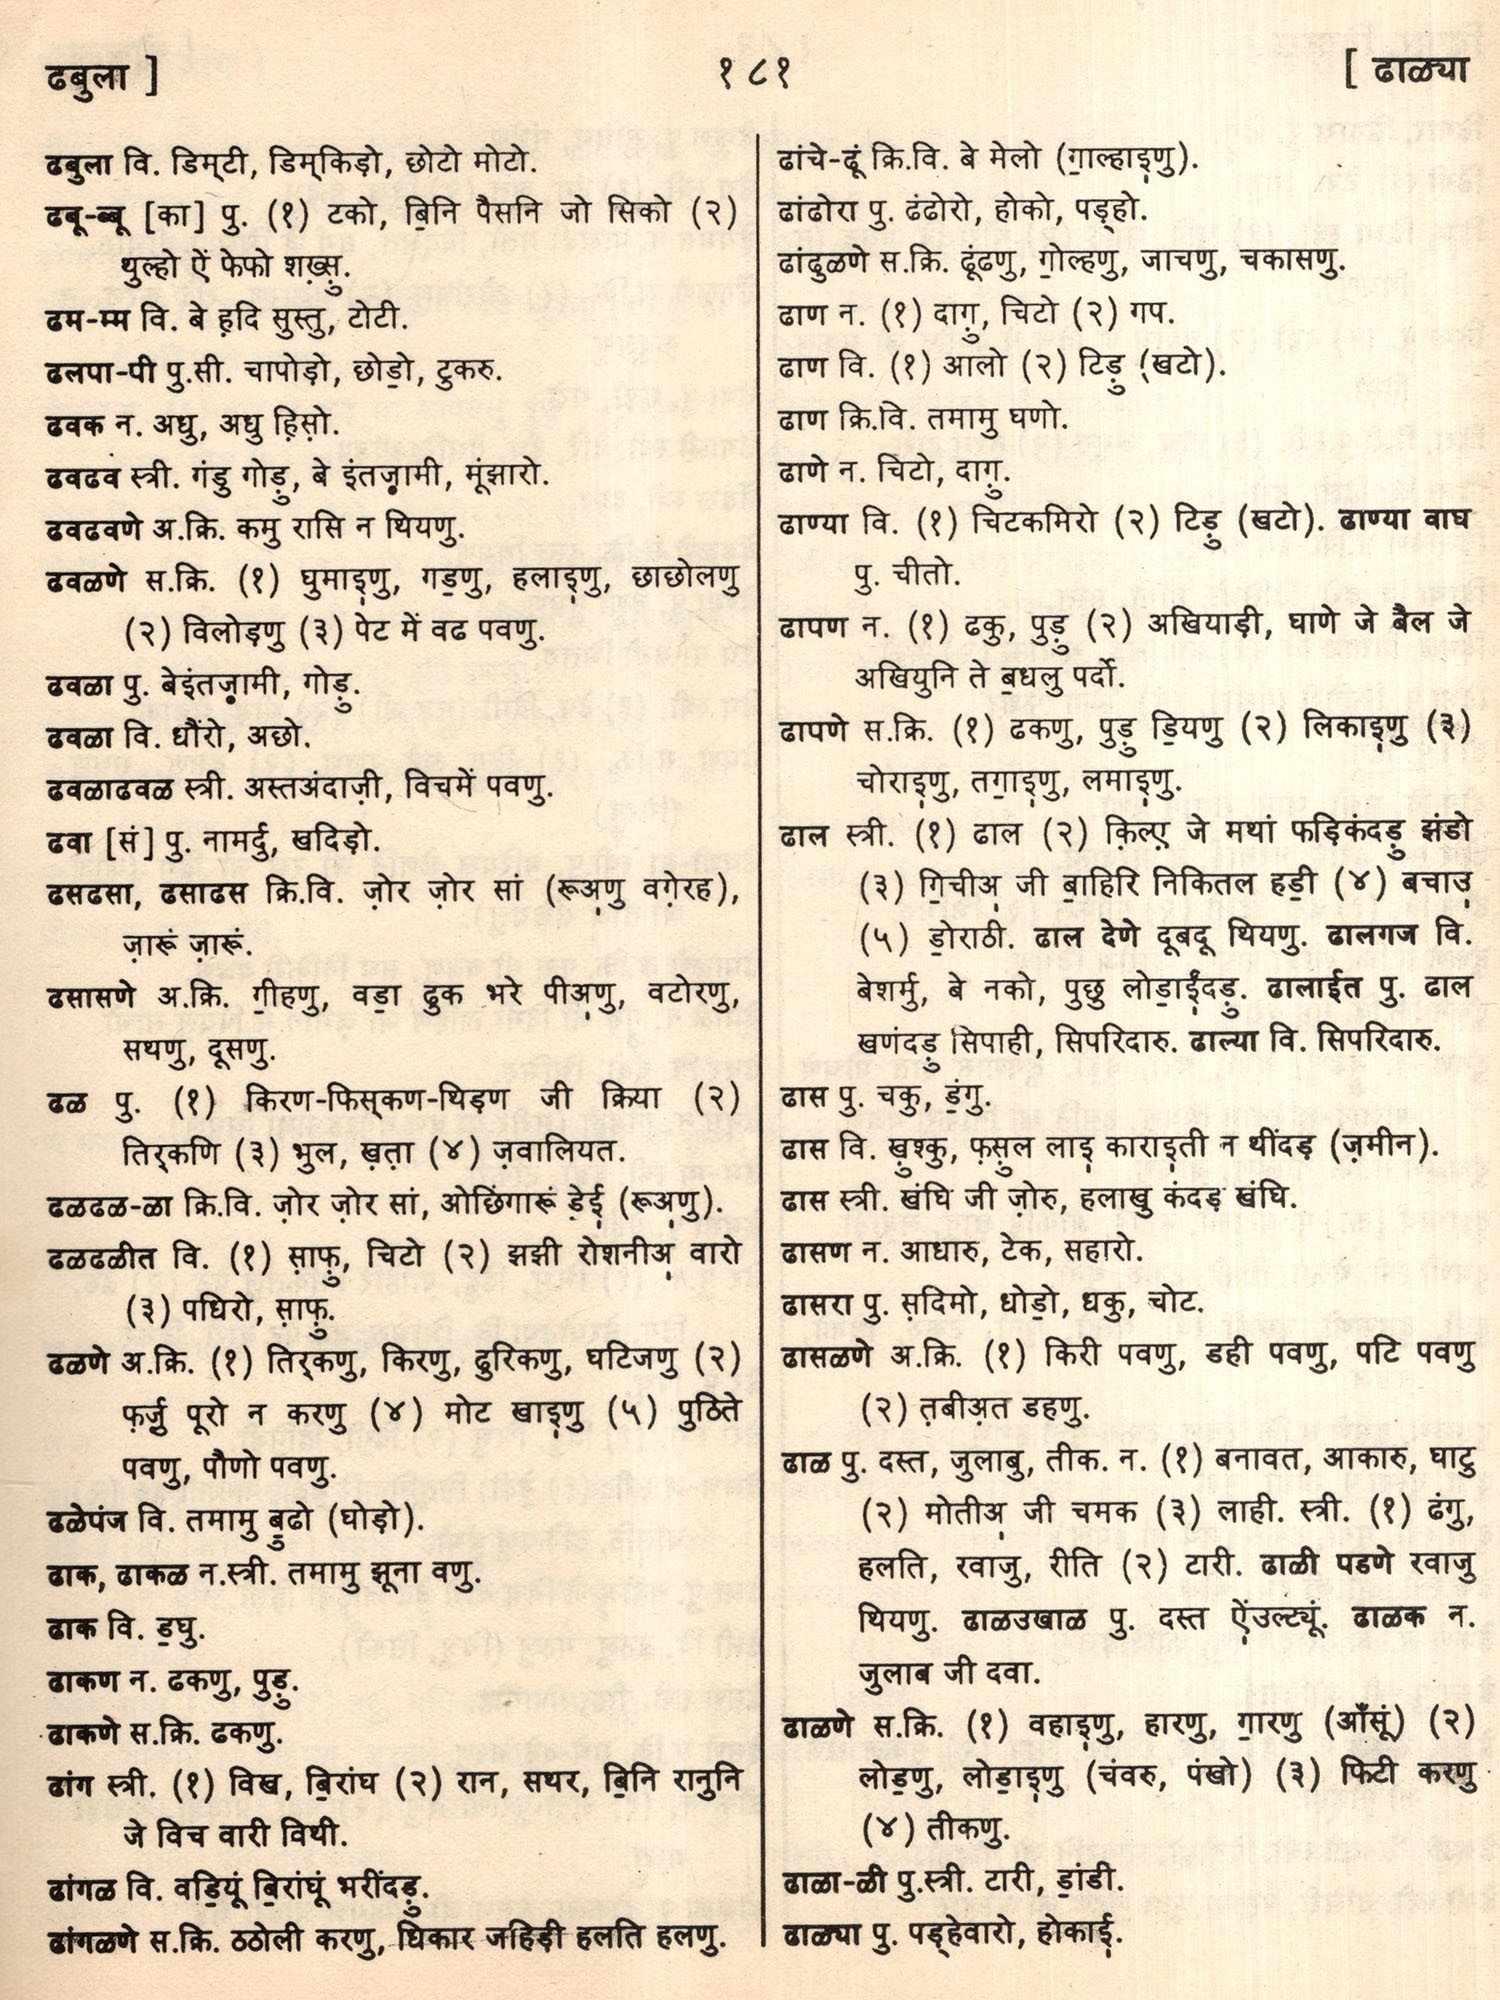 ढबुला ]
१८१
[ ढाळ्या
ढबुला वि. डिम्टी, डिम्किड़ो, छोटो मोटो.
ढबू-ब्बू [का] पु. (१) टको, ॿिनि पैसनि जो सिको (२)
थुल्हो ऐं फेफो शख़्सु.
ढम-म्म वि. बे ह़दि सुस्तु, टोटी.
ढलपा-पी पु.सी. चापोड़ो, छोॾो, टुकरु.
ढवक न. अधु, अधु हि़सो़.
ढवढव स्त्री. गंडु गोड़ु, बे इंतज़ामी, मूंझारो.
ढवढवणे अ.क्रि. कमु रासि न थियणु.
ढवळणे स.क्रि. (१) घुमाइ़णु, गॾणु, हलाइ़णु, छाछोलणु
(२) विलोड़णु (३) पेट में वढ पवणु.
ढवळा पु. बेइंतज़ामी, गोड़ु.
ढवळा वि. धौंरो, अछो.
ढवळाढवळ स्त्री. अस्तअंदाज़ी, विचमें पवणु.
ढवा [सं] पु. नामर्दु, खदिड़ो.
ढसढसा, ढसाढस क्रि.वि. ज़ोर ज़ोर सां (रूअ़णु वगे़रह),
ज़ारूं ज़ारूं.
ढसासणे अ.क्रि. ॻीहणु, वॾा ढुक भरे पीअ़णु, वटोरणु,
सथणु, दूसणु.
ढळ पु. (१) किरण-फिस्कण-थिड़ण जी क्रिया (२)
तिर्कणि (३) भुल, ख़ता़ (४) ज़वालियत.
ढळढळ-ळा क्रि.वि. ज़ोर ज़ोर सां, ओछिंगारूं ॾेई़ (रूअ़णु).
ढळढळीत वि. (१) सा़फ़ु, चिटो (२) झझी रोशनीअ़ वारो
(३) पधिरो, सा़फ़ु.
ढळणे अ.क्रि. (१) तिर्कणु, किरणु, ढुरिकणु, घटिजणु (२)
फ़र्जु़ पूरो न करणु (४) मोट खाइ़णु (५) पुठिते
पवणु, पौणो पवणु.
ढळेपंज वि. तमामु ॿुढो (घोड़ो).
ढाक, ढाकळ न.स्त्री. तमामु झूना वणु.
ढाक वि. ॾघु.
ढाकण न. ढकणु, पुड़ु.
ढाकणे स.क्रि. ढकणु.
ढांग स्त्री. (१) विख, ॿिरांघ (२) रान, सथर, ॿिनि रानुनि
जे विच वारी विथी.
ढांगळ वि. वॾियूं ॿिरांघूं भरींदड़ु.
ढांगळणे स.क्रि. ठठोली करणु, धिकार जहिड़ी हलति हलणु.
ढांचे-ढूं क्रि.वि. बे मेलो (ॻाल्हाइ़णु).
ढांढोरा पु. ढंढोरो, होको, पड़्हो.
ढांढुळणे स.क्रि. ढूंढणु, ॻोल्हणु, जाचणु, चकासणु.
ढाण न. (१) दाग़ु, चिटो (२) गप.
ढाण वि. (१) आलो (२) टिड़ु (खटो).
ढाण क्रि.वि. तमामु घणो.
ढाणे न. चिटो, दाग़ु.
ढाण्या वि. (१) चिटकमिरो (२) टिड़ु (खटो). ढाण्या वाघ
पु. चीतो.
ढापण न. (१) ढकु, पुड़ु (२) अखियाड़ी, घाणे जे बैल जे
अखियुनि ते ॿधलु पर्दो.
ढापणे स.क्रि. (१) ढकणु, पुड़ु ॾियणु (२) लिकाइ़णु (३)
चोराइ़णु, तॻाइ़णु, लमाइ़णु.
ढाल स्त्री. (१) ढाल (२) क़िल्ए़ जे मथां फड़िकंदड़ु झंडो
(३) ॻिचीअ़ जी ॿाहिरि निकितल हॾी (४) बचाउ़
(५) ॾोराठी. ढाल देणे दूबदू थियणु. ढालगज वि.
बेशर्मु, बे नको, पुछु लोॾाईं़दड़ु. ढालाईत पु. ढाल
खणंदड़ु सिपाही, सिपरिदारु. ढाल्या वि. सिपरिदारु.
ढास पु. चकु, ॾंगु.
ढास वि. ख़ुश्कु, फ़सु़ल लाइ़ काराइ़ती न थींदड़ (ज़मीन).
ढास स्त्री. खंघि जी ज़ोरु, हलाखु कंदड़ खंघि.
ढासण न. आधारु, टेक, सहारो.
ढासरा पु. स़दिमो, धोॾो, धकु, चोट.
ढासळणे अ.क्रि. (१) किरी पवणु, डही पवणु, पटि पवणु
(२) त़बीअ़त डहणु.
ढाळ पु. दस्त, जुलाबु, तीक. न. (१) बनावत, आकारु, घाटु
(२) मोतीअ़ जी चमक (३) लाही. स्त्री. (१) ढंगु,
हलति, रवाजु, रीति (२) टारी. ढाळी पडणे रवाजु
थियणु. ढाळउखाळ पु. दस्त ऐं़उल्ट्यूं. ढाळक न.
जुलाब जी दवा.
ढाळणे स.क्रि. (१) वहाइ़णु, हारणु, ॻारणु (आँसूं) (२)
लोॾणु, लोॾाइ़णु (चंवरु, पंखो) (३) फिटी करणु
(४) तीकणु.
ढाळा-ळी पु.स्त्री. टारी, ॾांडी.
ढाळ्या पु. पड़्हेवारो, होकाई़.